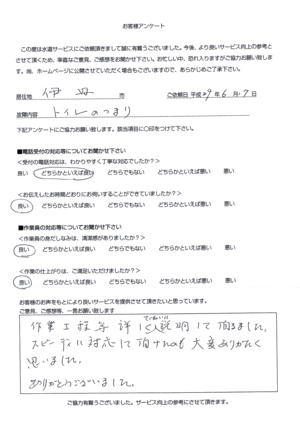 お客様アンケート
この度は水道サービスにご依頼頂きまして誠に有難うございました。今後、より良いサービス向上の参考と
させて頂くため、率直なご意見、ご感想をお聞かせ下さい。お忙しい中、恐れ入りますがご協力お願い致しま
す。尚、ホームページに公開させていただく場合もございますので、あらかじめご了承下さい。
居住地 伊丹 市 ご依頼日 平成29年6月7日
故障内容 トイレのつまり
下記アンケートにご協力お願い致します。該当項目に〇印をつけて下さい。
■電話受付の対応等についてお聞かせ下さい
<受付の電話対応は、わかりやすく丁寧な対応でしたか?>
良い どちらかといえば良い どちらでもない どちらかといえば悪い 悪い
<お伝えしたお時間どおりにお伺いすることができていましたか?>
良い どちらかといえば良い どちらでもない どちらかといえば悪い 悪い
■作業員の対応等についてお聞かせ下さい
<作業員の身だしなみは、清潔感がありましたか?>
良い どちらかといえば良い どちらでもない どちらかといえば悪い 悪い
<作業の仕上がりは、ご満足いただけましたか?>
良い どちらかといえば良い どちらでもない どちらかといえば悪い 悪い
お客様のお声をもとにより良いサービスを提供させて頂きたいと思っています。
ご意見、ご感想等、一言お願い致します
ていねいに
作業工程等詳しく説明して頂きました。
スピーディに対応して頂けたのも大変ありがたく
思いました。
ありがとうございました。
ご協力有難うございました。サービス向上の参考にさせて頂きます。